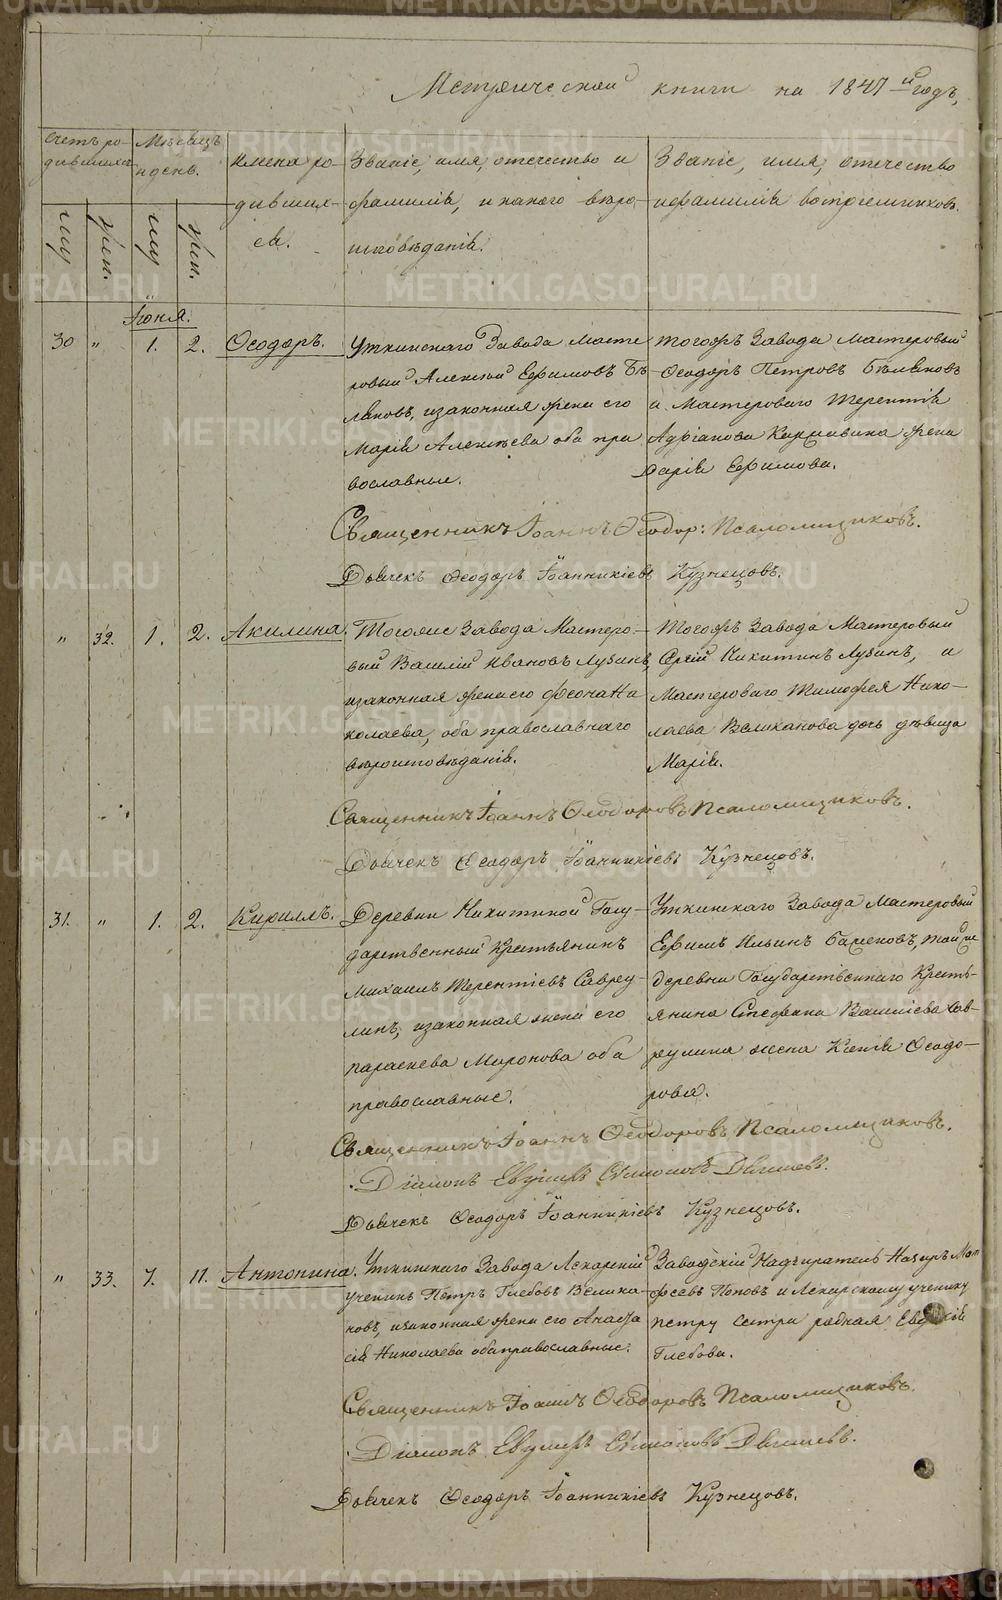 Метрической книги на 1847й годъ,
Счетъ ро-
дившихся
Мѣсяцъ
и день.
Имена ро-
дивших-
ся.
Званіе, имя, отечество и
фамилія, и какого вѣро-
исповѣданія.
Званіе, имя, отечество
и фамилія воспріемниковъ.
му
жен.
Іюня.
30 " 1. 2. Ѳеодоръ.
Уткинскаго Завода Масте
ровый Алексей Ефимовъ Бѣ-
ляковъ, и законная жена его
Марія Алексѣева оба пра
вославные.
Тогожъ Завода Мастеровый
Ѳеодоръ Петровъ Бѣляковъ
и Мастероваго Терентія
Адріанова жена
Дарія Ефимова.
Священникъ Іоаннъ Ѳеодор: Псаломщиковъ.
Дьячекъ Ѳеодоръ Іоанникіевъ Кузнецовъ.
" 32. 1. 2. Акилина.
Тогоже Завода Мастеро-
вый Василій Ивановъ Лузинъ,
и законная жена его Ни
колаева, оба православнаго
вѣроисповѣданія.
Тогожъ Завода Мастеровый
Сергій Никитинъ Лузинъ, и
Мастероваго Тимофея Нико-
лаева Великанова дочь дѣвица
Марія.
Священникъ Іоаннъ Ѳеодоровъ Псаломщиковъ.
Дьячекъ Ѳеодоръ Іоанникіевъ Кузнецовъ.
31. " 1. 2. Кириллъ.
Деревни Никитиной Госу-
дарственный Крестьянинъ
Михаилъ Терентіевъ Савру-
линъ, и законная жена его
Параскева Миронова оба
православные.
Уткинскаго Завода Мастеровый
Ефимъ Ильинъ той же
деревни Государственнаго Кресть-
янина Стефана Василіева Сав-
рулина жена Ксенія Ѳеодо-
рова.
Священникъ Іоаннъ Ѳеодоровъ Псаломщиковъ.
Діаконъ Симоновъ
Дьячекъ Ѳеодоръ Іоанникіевъ Кузнецовъ.
" 33. 7. 11. Антонина.
Уткинскаго Завода Лекарскій
ученикъ Петръ Глебовъ Велика-
новъ, и законная жена его Анаста
сія Николаева оба православные.
Заводскій Надзиратель Назаръ Мат
феевъ Поповъ и Лекарскому ученику
Петру сестра родная Евдокія
Глебова.
Священникъ Іоаннъ Ѳеодоровъ Псаломщиковъ.
Діаконъ Симоновъ
Дьячекъ Ѳеодоръ Іоанникіевъ Кузнецовъ.
METRIKI.GASO-URAL.RU